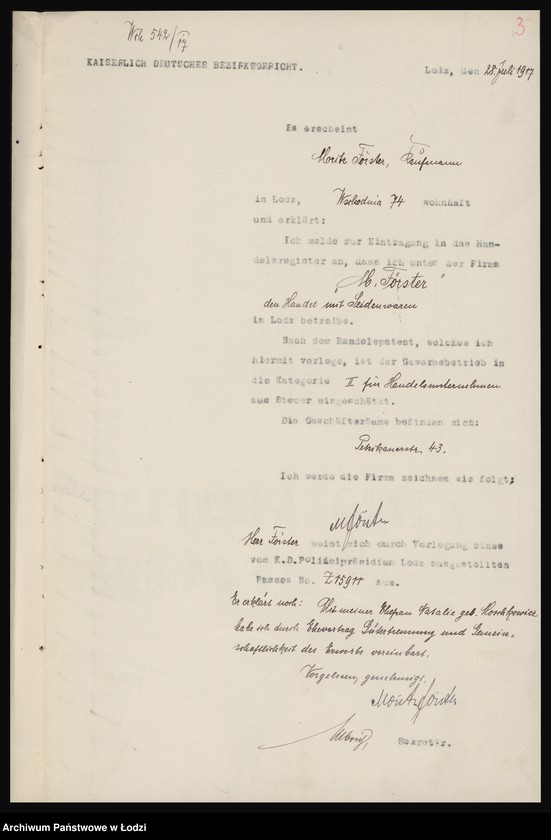 3
542/17
KAISERLICH DEUTSCHES BEZIRKSGERICHT.
Lodz, den 28. Juli 1917
Es erscheint
Moritz Förster, Kaufmann
in Lodz, Wschodnia 74 wohnhaft
und erklärt:
Ich melde zur Eintragung in das Han-
delsregister an, dass ich unter der Firma
„M. Förster"
den Handel mit Seidenwaren
in Lodz betreibe.
Nach dem Handelspatent, welches ich
hiermit vorlege, ist der Gewerbebetrieb in
die Kategorie II für Handelsunternehmen
zur Steuer eingeschätzt.
Die Geschäftsräume befinden sich:
Petrikauerstr. 43.
Ich werde die Firma zeichnen wie folgt:
M Förster
Herr Förster weist sich durch Vorlegung eines
vom K.D.Polizeipräsidium Lodz ausgestellten
Passes No. Z 15911 aus.
Er erklärt noch: Mit meiner Ehefrau Natalie geb.
habe ich durch Ehevertrag Gütertrennung und Gemein-
schaftlichkeit des Erwerbs vereinbart.
Vorgelesen, genehmigt.
Moritz Förster
Sekretär.
Archiwum Państwowe w Łodzi